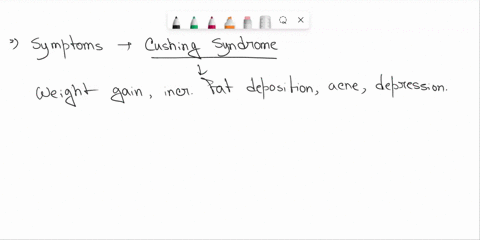 2) Symptoms → Cushing Syndrome
↓
Weight gain, incr. Fat deposition, acne, depression.